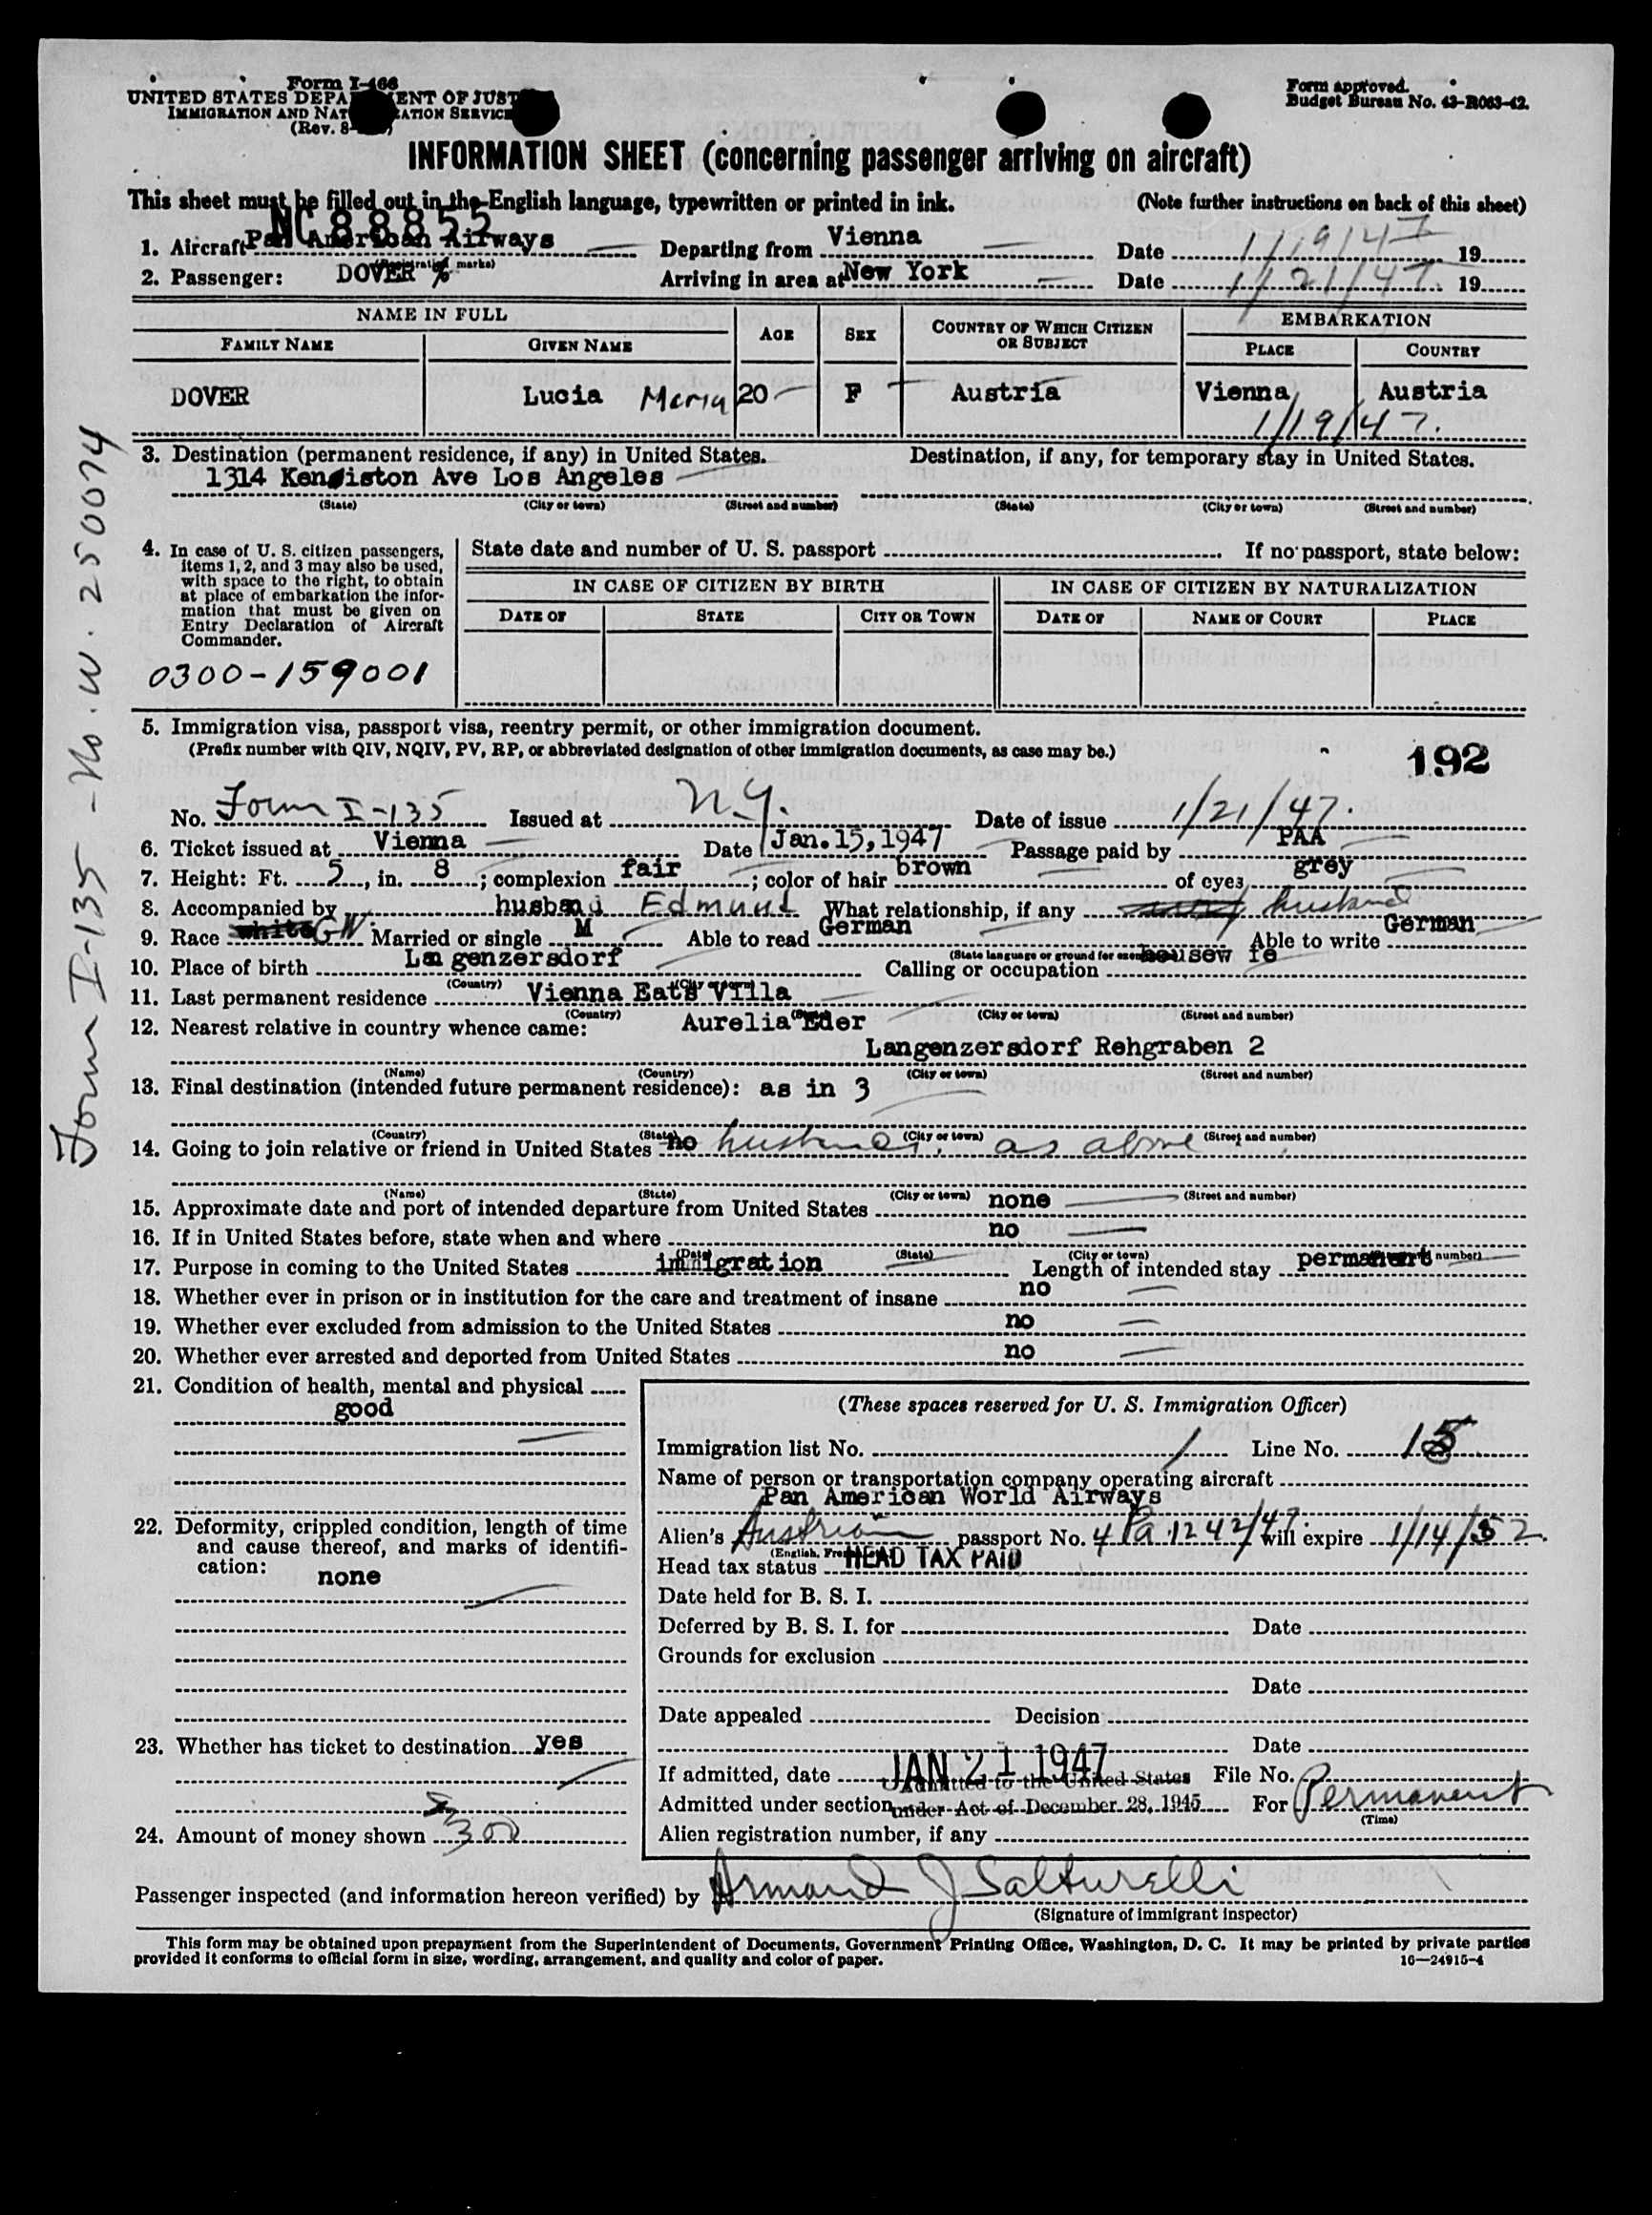 Form I-466
UNITED STATES DEPA ENT OF JUST
IMMIGRATION AND NAT ATION SERVICE
(Rev. 8- )
Form approved.
Budget Bureau No. 43-R063-42.
INFORMATION SHEET (concerning passenger arriving on aircraft)
This sheet must be filled out in the English language, typewritten or printed in ink. (Note further instructions on back of this sheet)
NC 88855
1. Aircraft Pan American Airways Departing from Vienna Date 1/19/47 19
(Registration marks)
2. Passenger: DOVER % Arriving in area at New York Date 1/21/47. 19
NAME IN FULL AGE SEX COUNTRY OF WHICH CITIZEN OR SUBJECT EMBARKATION
FAMILY NAME GIVEN NAME PLACE COUNTRY
DOVER Lucia Maria 20 F Austria Vienna, Austria
1/19/47.
3. Destination (permanent residence, if any) in United States. Destination, if any, for temporary stay in United States.
1314 Keniston Ave Los Angeles
(State) (City or town) (Street and number) (State) (City or town) (Street and number)
4. In case of U. S. citizen passengers, items 1, 2, and 3 may also be used, with space to the right, to obtain at place of embarkation the information that must be given on Entry Declaration of Aircraft Commander.
State date and number of U. S. passport If no passport, state below:
IN CASE OF CITIZEN BY BIRTH IN CASE OF CITIZEN BY NATURALIZATION
DATE OF STATE CITY OR TOWN DATE OF NAME OF COURT PLACE
0300-159001
5. Immigration visa, passport visa, reentry permit, or other immigration document.
(Prefix number with QIV, NQIV, PV, RP, or abbreviated designation of other immigration documents, as case may be.)
192
No. Form I-135 Issued at N.Y. Date of issue 1/21/47.
6. Ticket issued at Vienna Date Jan.15,1947 Passage paid by PAA
7. Height: Ft. 5, in. 8; complexion fair; color of hair brown of eyes grey
8. Accompanied by husband Edmund What relationship, if any husband
9. Race white GN Married or single M Able to read German Able to write German
(State language or ground for exemption)
10. Place of birth Langenzersdorf Calling or occupation housew fe
(Country) (City or town)
11. Last permanent residence Vienna Eats Villa
(Country) (State) (City or town) (Street and number)
12. Nearest relative in country whence came: Aurelia Eder
Langenzersdorf Rehgraben 2
(Name) (Country) (City or town) (Street and number)
13. Final destination (intended future permanent residence): as in 3
(Country) (State) (City or town) (Street and number)
14. Going to join relative or friend in United States no husband. as above
(Name) (State) (City or town) (Street and number)
15. Approximate date and port of intended departure from United States none
16. If in United States before, state when and where no
(Date) (State) (City or town) (Street and number)
17. Purpose in coming to the United States immigration Length of intended stay permanent
18. Whether ever in prison or in institution for the care and treatment of insane no
19. Whether ever excluded from admission to the United States no
20. Whether ever arrested and deported from United States no
21. Condition of health, mental and physical
good
22. Deformity, crippled condition, length of time and cause thereof, and marks of identification:
none
23. Whether has ticket to destination yes
24. Amount of money shown 300
(These spaces reserved for U. S. Immigration Officer)
Immigration list No. 1 Line No. 15
Name of person or transportation company operating aircraft
Pan American World Airways
Alien's Austrian passport No. 4 Pa 1242/47 will expire 1/14/52.
Head tax status HEAD TAX PAID
Date held for B. S. I.
Deferred by B. S. I. for Date
Grounds for exclusion
Date
Date appealed Decision
Date
If admitted, date JAN 21 1947 File No.
Admitted to the United States
Admitted under section under Act of December 28, 1945 For Permanent
(Time)
Alien registration number, if any
Passenger inspected (and information hereon verified) by Armand J Salturelli
(Signature of immigrant inspector)
This form may be obtained upon prepayment from the Superintendent of Documents, Government Printing Office, Washington, D. C. It may be printed by private parties
provided it conforms to official form in size, wording, arrangement, and quality and color of paper. 16—24915-4
Form I-135 - No. W. 250074